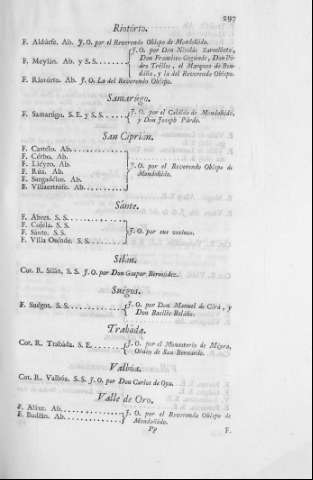 297
Riotorto.
F. Aldurfe. Ab. J. O. por el Reverendo Obispo de Mondoñedo.
J. O. por Don Nicolás
F. Meylán. Ab. y S. S. . . . . . Don Francisco Don Pe-
dro Trelles, el Marques de
y la del Reverendo Obispo.
F. Riotórto. Ab. J. O. La del Reverendo Obispo.
Samarúgo.
F. Samarúgo. S. E. y S. S. . . . . J. O. por el Cabildo de Mondoñedo,
y Don Joseph Pardo.
San Ciprian.
F. Castelo. Ab.
F. Cérbo. Ab.
F. Lieyro. Ab.
F. Rúa. Ab. J. O. por el Reverendo Obispo de
F. Sargadélos. Ab. Mondoñedo.
F. Villaestrofe. Ab.
Sánte.
F. Abres. S. S.
F. S. S.
F. Sánte. S. S. J. O. por sus vecinos.
F. Villa Osénde. S. S.
Silán.
Cot. R. Silán. S. S. J. O. por Don Gaspar Bermúdez.
Suégos.
F. Suégos. S. S. . . . . . . J. O. por Don Manuel de , y
Don Basilio Bolaño.
Trabáda.
Cot. R. Trabáda. S. E. . . . . . J. O. por el Monasterio de Meyra,
Orden de San Bernardo.
Valbóa.
Cot. R. Valbóa. S. S. J. O. por Don Carlos de Oya.
Valle de Oro.
F. Ab. . . . . . . J. O. por el Reverendo Obispo de
F. Budián. Ab. . . . . . . Mondoñedo.
Pp F.